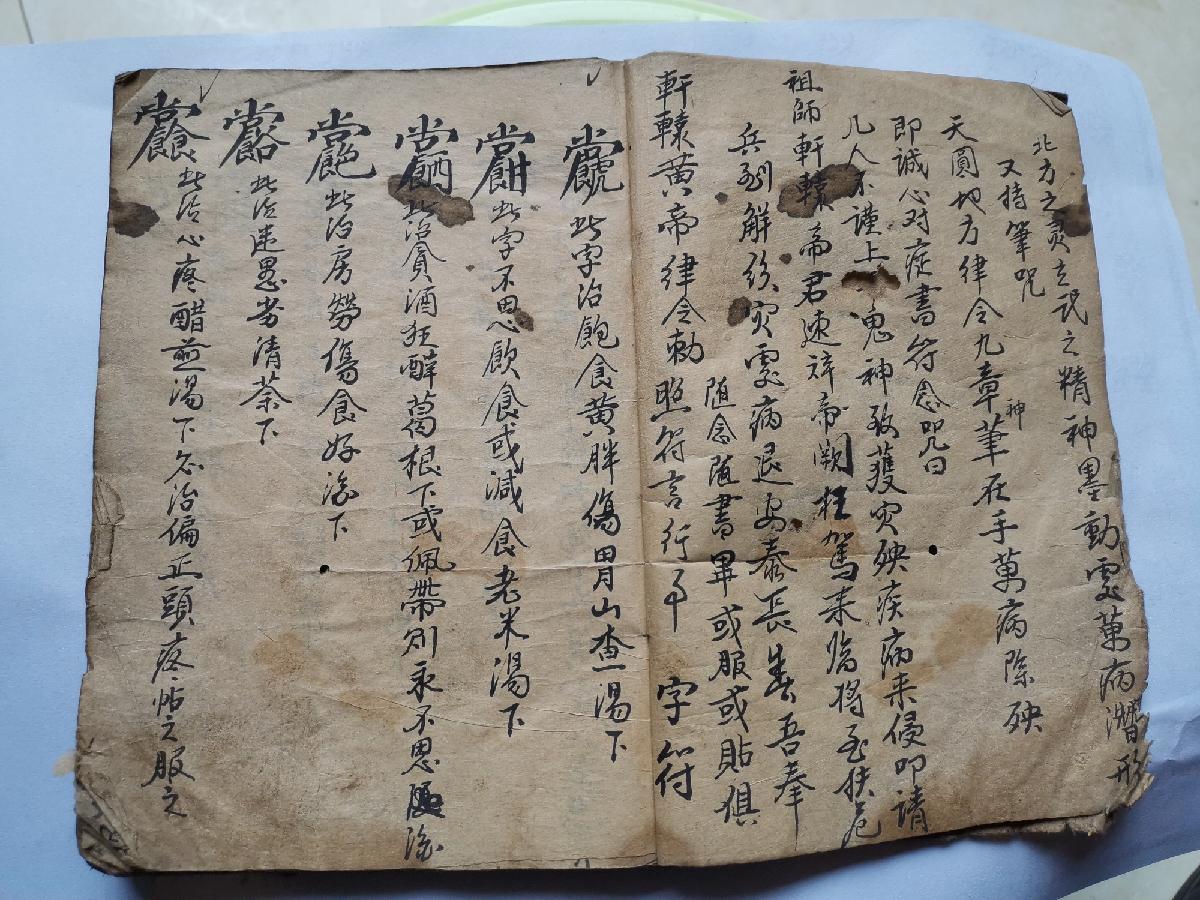 北方之灵玄武之精神墨動處萬病潛形
又持筆咒
天圓地方律令九章神筆在手萬病除殃
即誠心对症書符念咒曰
凡人不謹上鬼神致獲灾殃疾病来侵叩請
祖師軒轅帝君速辞帝闕枉駕来臨將至扶危
兵到解纷灾處病退安泰長生吾奉
軒轅黄帝律令勅 随念随書畢或服或貼俱
照符言行 字符
此字治飽食黄胖傷胃山查湯下
此字不思飲食或減食老米湯下
此治貪酒狂醉葛根下或佩帶則永不思
此治房勞傷食好酒下
此治愚劳清茶下
此治心疼醋煎湯下又治偏正頭疼帖之服之